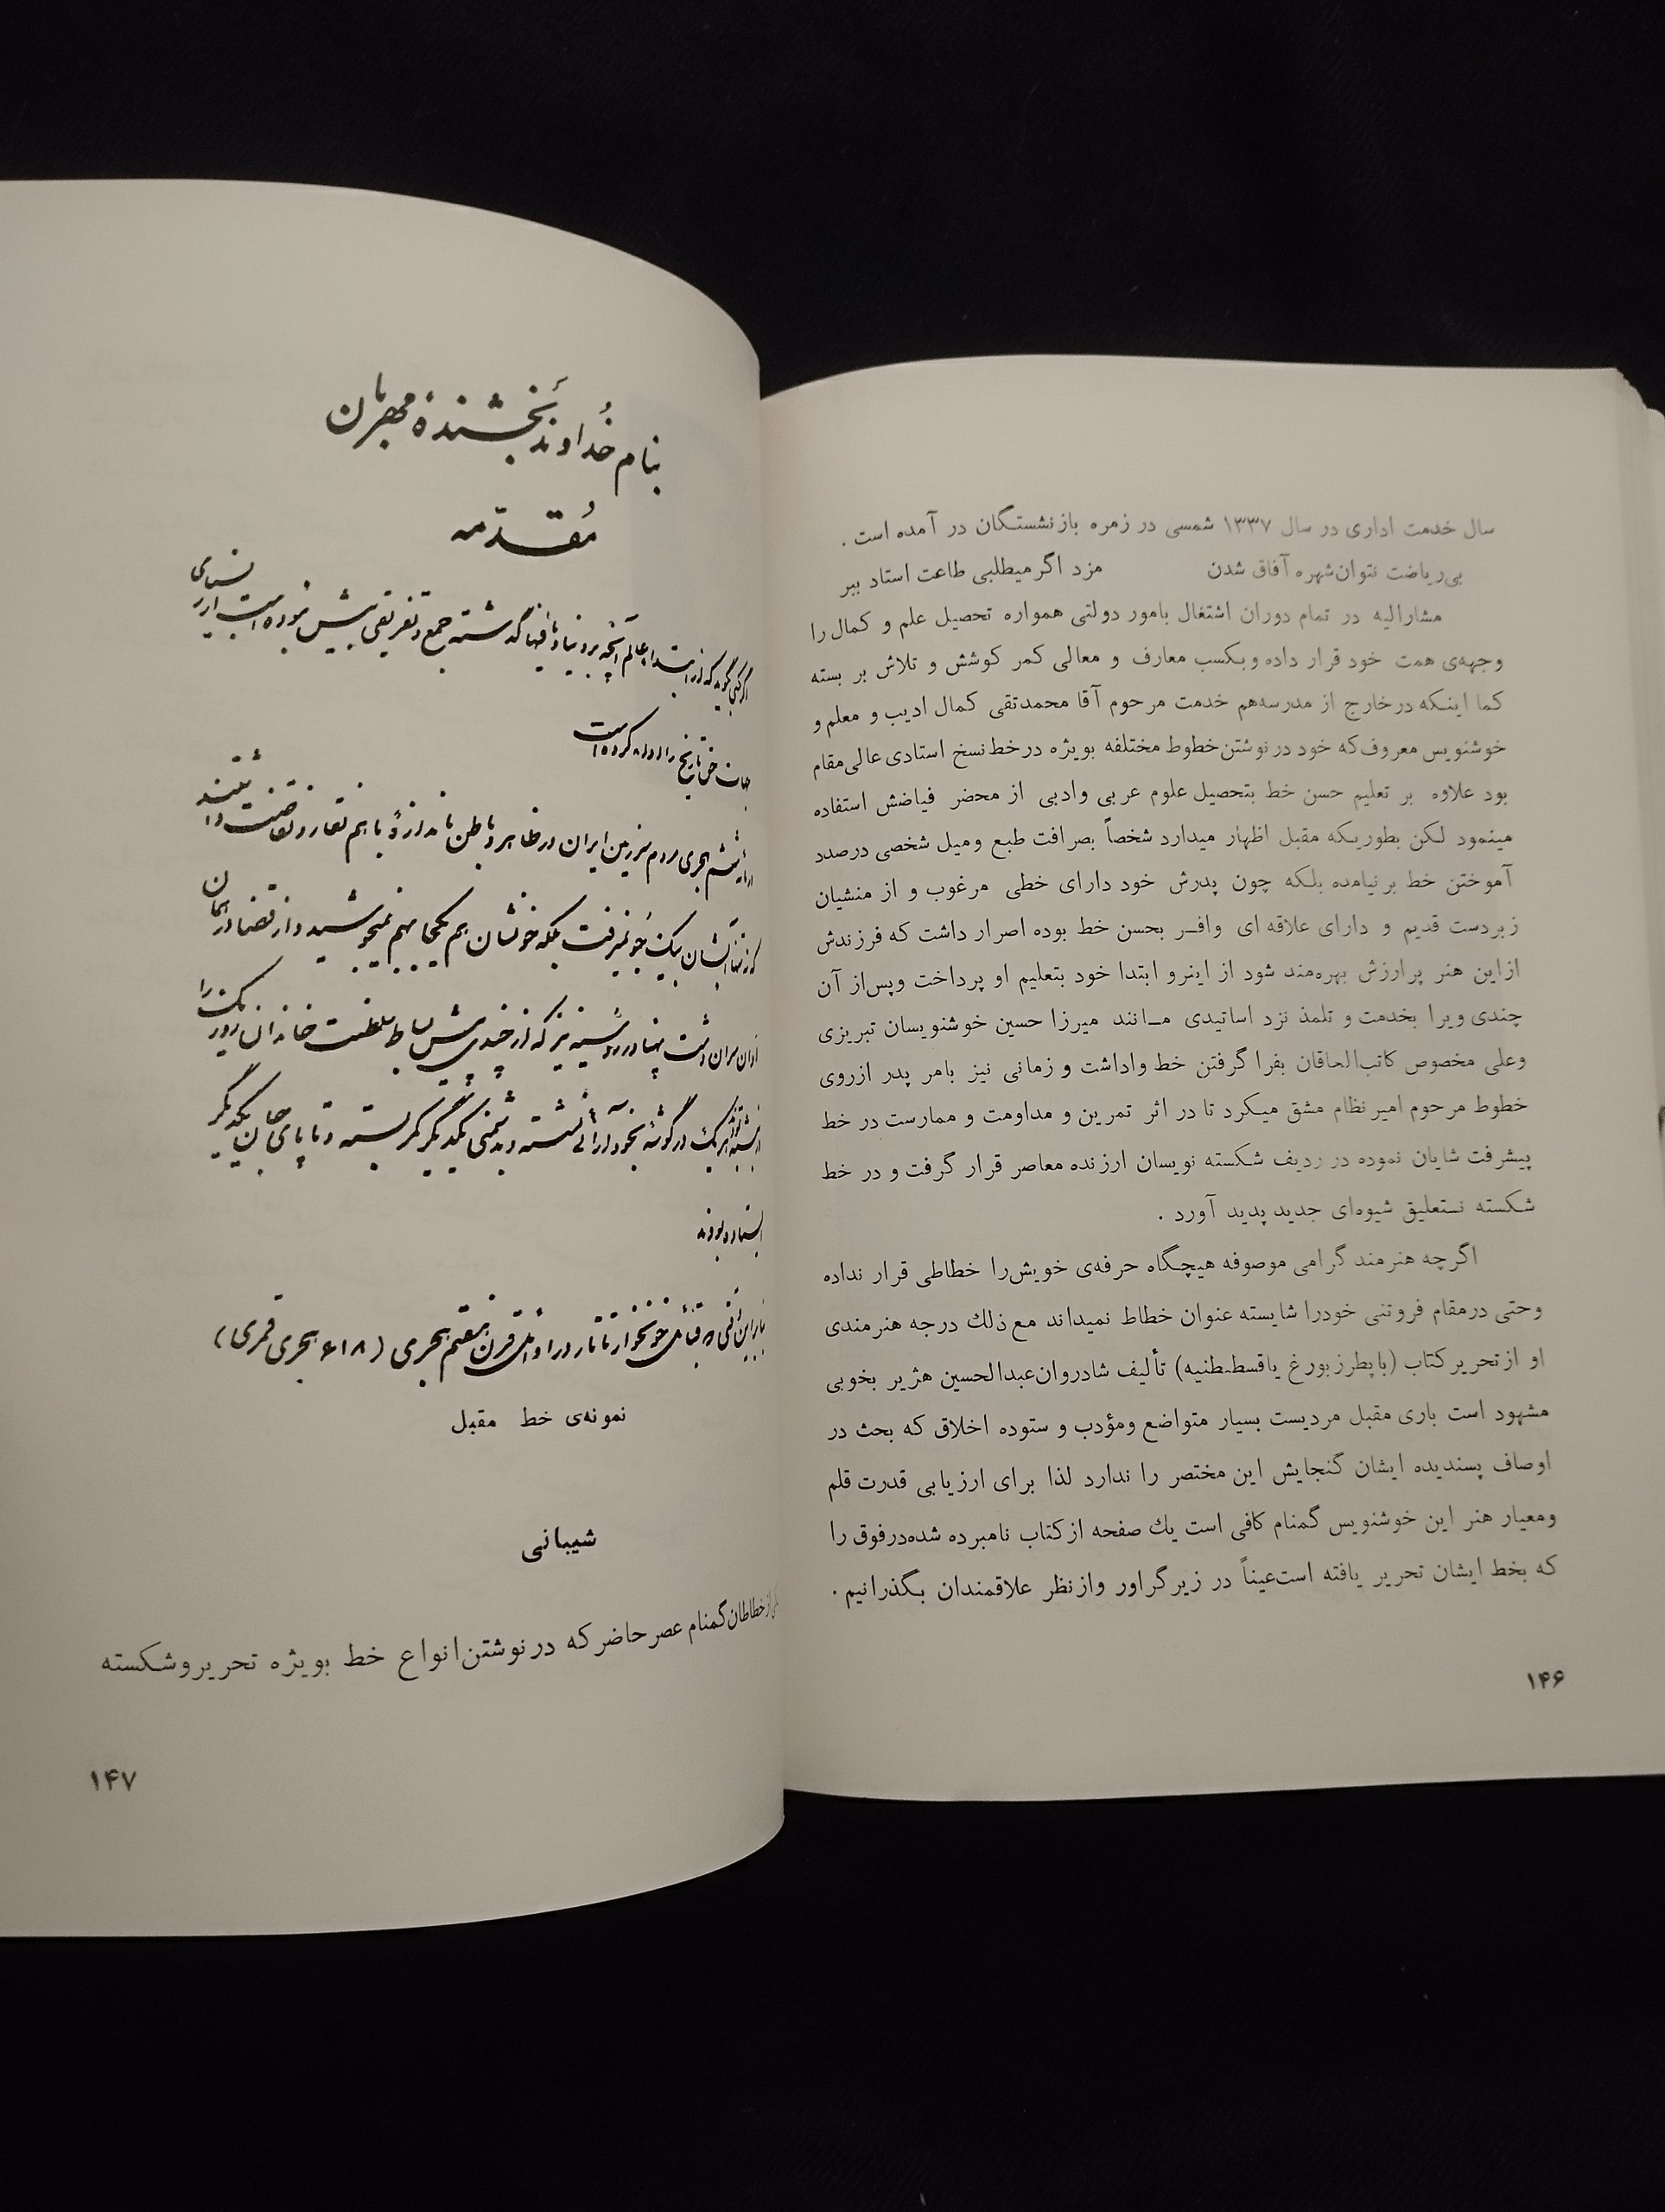 سال خدمت اداری در سال ۱۳۳۷ شمسی در زمره بازنشستگان در آمده است .
بی‌ریاضت نتوان شهره آفاق شدن مزد اگر میطلبی طاعت استاد ببر
مشارالیه در تمام دوران اشتغال بامور دولتی همواره تحصیل علم و کمال را
وجهه‌ی همت خود قرار داده وبکسب معارف و معالی کمر کوشش و تلاش بر بسته
کما اینکه درخارج از مدرسه‌هم خدمت مرحوم آقا محمدتقی کمال ادیب و معلم و
خوشنویس معروف که خود در نوشتن خطوط مختلفه بویژه در خط نسخ استادی عالی‌مقام
بود علاوه بر تعلیم حسن خط بتحصیل علوم عربی وادبی از محضر فیاضش استفاده
مینمود لکن بطوریکه مقبل اظهار میدارد شخصاً بصرافت طبع ومیل شخصی درصدد
آموختن خط برنیامده بلکه چون پدرش خود دارای خطی مرغوب و از منشیان
زبردست قدیم و دارای علاقه ای وافر بحسن خط بوده اصرار داشت که فرزندش
ازاین هنر پرارزش بهره‌مند شود از اینرو ابتدا خود بتعلیم او پرداخت وپس‌از آن
چندی ویرا بخدمت و تلمذ نزد اساتیدی مانند میرزا حسین خوشنویسان تبریزی
وعلی مخصوص کاتب‌الخاقان بفرا گرفتن خط واداشت و زمانی نیز بامر پدر ازروی
خطوط مرحوم امیر نظام مشق میکرد تا در اثر تمرین و مداومت و ممارست در خط
پیشرفت شایان نموده در ردیف شکسته نویسان ارزنده معاصر قرار گرفت و در خط
شکسته نستعلیق شیوه‌ای جدید پدید آورد .
اگرچه هنرمند گرامی موصوفه هیچگاه حرفه‌ی خویش‌را خطاطی قرار نداده
وحتی درمقام فروتنی خودرا شایسته عنوان خطاط نمیداند مع ذلك درجه هنرمندی
او ازتحریر کتاب (یا پطرزبورغ یا قسطنطنیه) تألیف شادروان عبدالحسین هژیر بخوبی
مشهود است باری مقبل مردیست بسیار متواضع ومؤدب و ستوده اخلاق که بحث در
اوصاف پسندیده ایشان گنجایش این مختصر را ندارد لذا برای ارزیابی قدرت قلم
ومعیار هنر این خوشنویس گمنام کافی است یك صفحه ازکتاب نامبرده شده‌درفوق را
که بخط ایشان تحریر یافته است‌عیناً در زیرگراور وازنظر علاقمندان بگذرانیم .
۱۴۶
بنام خداوند بخشندهٔ مهربان
مقدّمه
اگر کسی بگوید که از ابتداء عالم آنچه بر دنیا و مافیها گذشته جمع و تفریقی بیش نبوده است از
تاریخ را ادا کرده است
هجری مردم سرزمین ایران در ظاهر و باطن باندازهٔ با هم نقار و نقاضت داشتند
که نه تنها آبشان بیک جو نمیرفت بلکه خونشان هم یکجا بهم نمیجوشید و از قضا در همان
اوان سران دشت پهناور روسیه نیز که از چندی پیش بساط سلطنت خاندان روریک را
هر یک در گوشهٔ بخودآرائی نشسته و بدشمنی یکدیگر کمر بسته و تا پای جان یکدیگر
ایستاده بودند
بنابراین وقتی که قبائل خونخوار تاتار در اوائل قرن هفتم هجری (۶۱۸ هجری قمری)
نمونه‌ی خط مقبل
شیبانی
یکی از خطاطان گمنام عصرحاضرکه درنوشتن‌انواع خط بویژه تحریروشکسته
۱۴۷